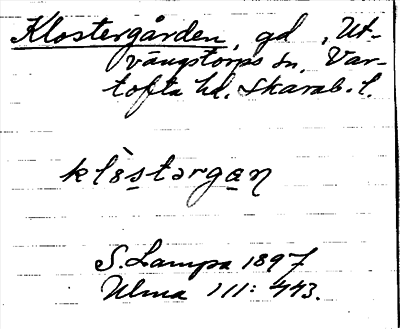 Klostergården, gd, Ut-
vängstorps sn, Var-
tofta hd. Skarab. l.
klòstərgan
S. Lampa 1897
Ulma 111: 443.